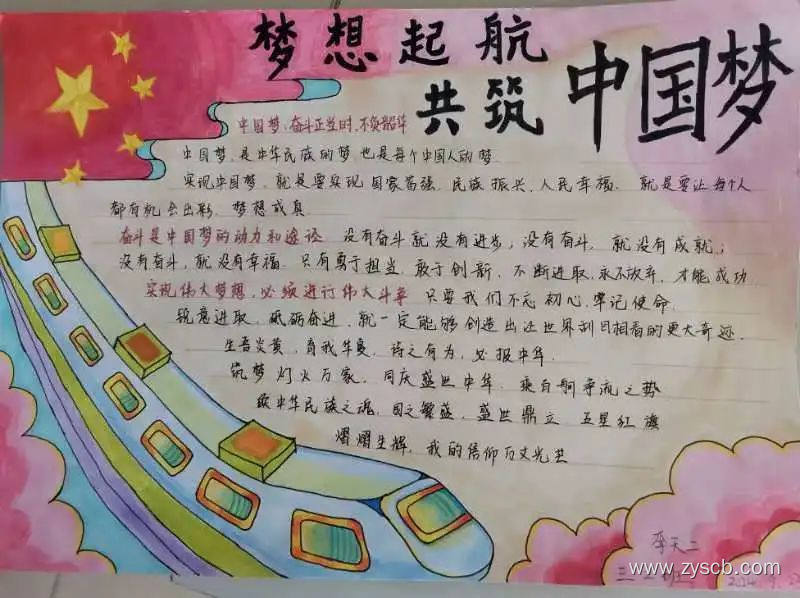 梦想起航
共筑 中国梦
中国梦,奋斗正当时,不负韶华
中国梦,是中华民族的梦 也是每个中国人的梦.
实现中国梦, 就是要实现 国家富强. 民族 振兴, 人民幸福. 就是要让每个人
都有机会出彩, 梦想成真.
奋斗是中国梦的动力和途径 没有奋斗就没有进步; 没有奋斗, 就没有成就;
没有奋斗, 就没有幸福. 只有勇于担当, 敢于创新, 不断进取,永不放弃, 才能成功
实现伟大梦想, 必须进行伟大斗争 只要我们不忘初心,牢记使命,
锐意进取, 砥砺奋进, 就一定能够创造出让世界刮目相看的更大奇迹.
生吾炎黄, 育我华夏, 诗之有为, 必报中华.
筑梦灯火万家, 同庆盛世中华 乘百舸争流之势
中华民族之魂, 国之繁盛, 盛世鼎立 五星红旗
熠熠生辉, 我的信仰万丈光芒
李天二
三 2 班
www.zyscb.com